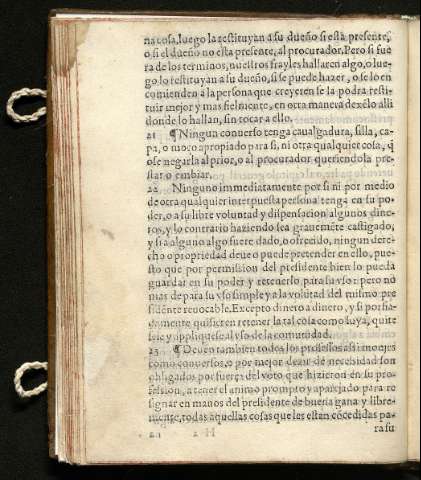 na cosa, luego la restituyan a su dueño si està presente,
o si el dueño no esta presente, al procurador. Pero si fue
ra de los terminos, nuestros frayles hallaren algo, o lue-
go lo restituyan a su dueño, si se puede hazer, o se lo en
comienden a la persona que creyeren se la podra resti-
tuir mejor y mas fielmente, en otra manera dexēlo alli
donde lo hallan, sin tocar a ello.
21 ¶ Ningun conuerso tenga caualgadura, silla, ca-
pa, o moço apropiado para si, ni otra qualquier cosa, q̄
o se negarla al prior, o al procurador queriendola pre-
star o embiar.
22 Ninguno immediatamente por si ni por medio
de otra qualquier interpuesta persona tenga en su po-
der, o a su libre voluntad y dispensacion algunos dine-
ros, y lo contrario haziendo sea grauemēte castigado,
y si a alguno algo fuere dado, o ofrecido, ningun dere-
cho o propriedad deue o puede pretender en ello, pue-
sto que por permission del presidente bien lo pueda
guardar en su poder y retenerlo para su vso: pero nō
mas de para su vso simple y a la volūtad del mismo pre
sidente reuocable. Excepto dinero a dinero, y si porfia-
damente quisieren retener la tal cosa como suya, quite
sele y appliquese al vso de la comunidad.
23 ¶ Deuen tambien todos los professos assi mōjes
como conuersos, o por mejor dezir de necessidad son
obligados por fuerça del voto que hizieron en su pro-
fession, a tener el animo prompto y aparejado para re
signar en manos del presidente de buena gana y libre-
mente, todas aquellas cosas que les estan cōcedidas pa-
H 2
ra su